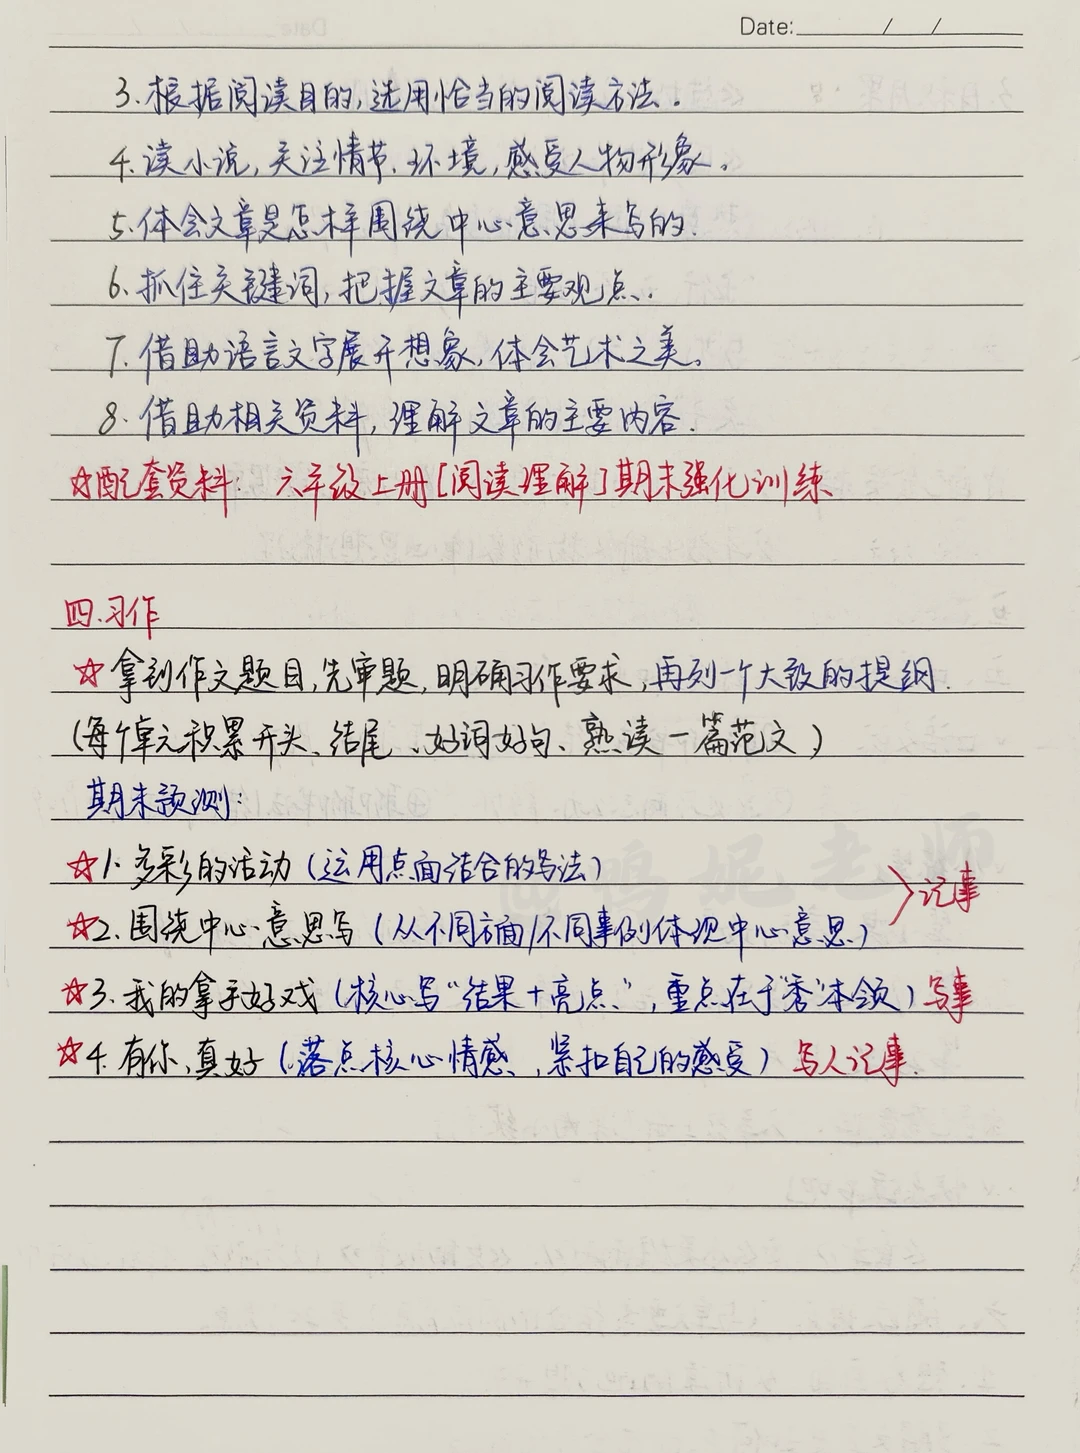 Date: / /
3.根据阅读目的,选用恰当的阅读方法。
4.读小说,关注情节、环境,感受人物形象。
5.体会文章是怎样围绕中心意思来写的.
6.抓住关键词,把握文章的主要观点.
7.借助语言文字展开想象,体会艺术之美。
8.借助相关资料,理解文章的主要内容.
☆配套资料: 六年级上册[阅读理解]期末强化训练
四.习作
☆拿到作文题目,先审题,明确习作要求,再列一个大致的提纲.
(每个单元积累开头、结尾、好词好句、熟读一篇范文)
期末预测:
☆1.多彩的活动(运用点面结合的写法)
☆2.围绕中心意思写(从不同方面/不同事例体现中心意思) 记事
☆3.我的拿手好戏(核心写“结果+亮点”,重点在于“秀”本领)写事
☆4.有你,真好(落点核心情感、,紧扣自己的感受)写人记事.
鸣妮老师